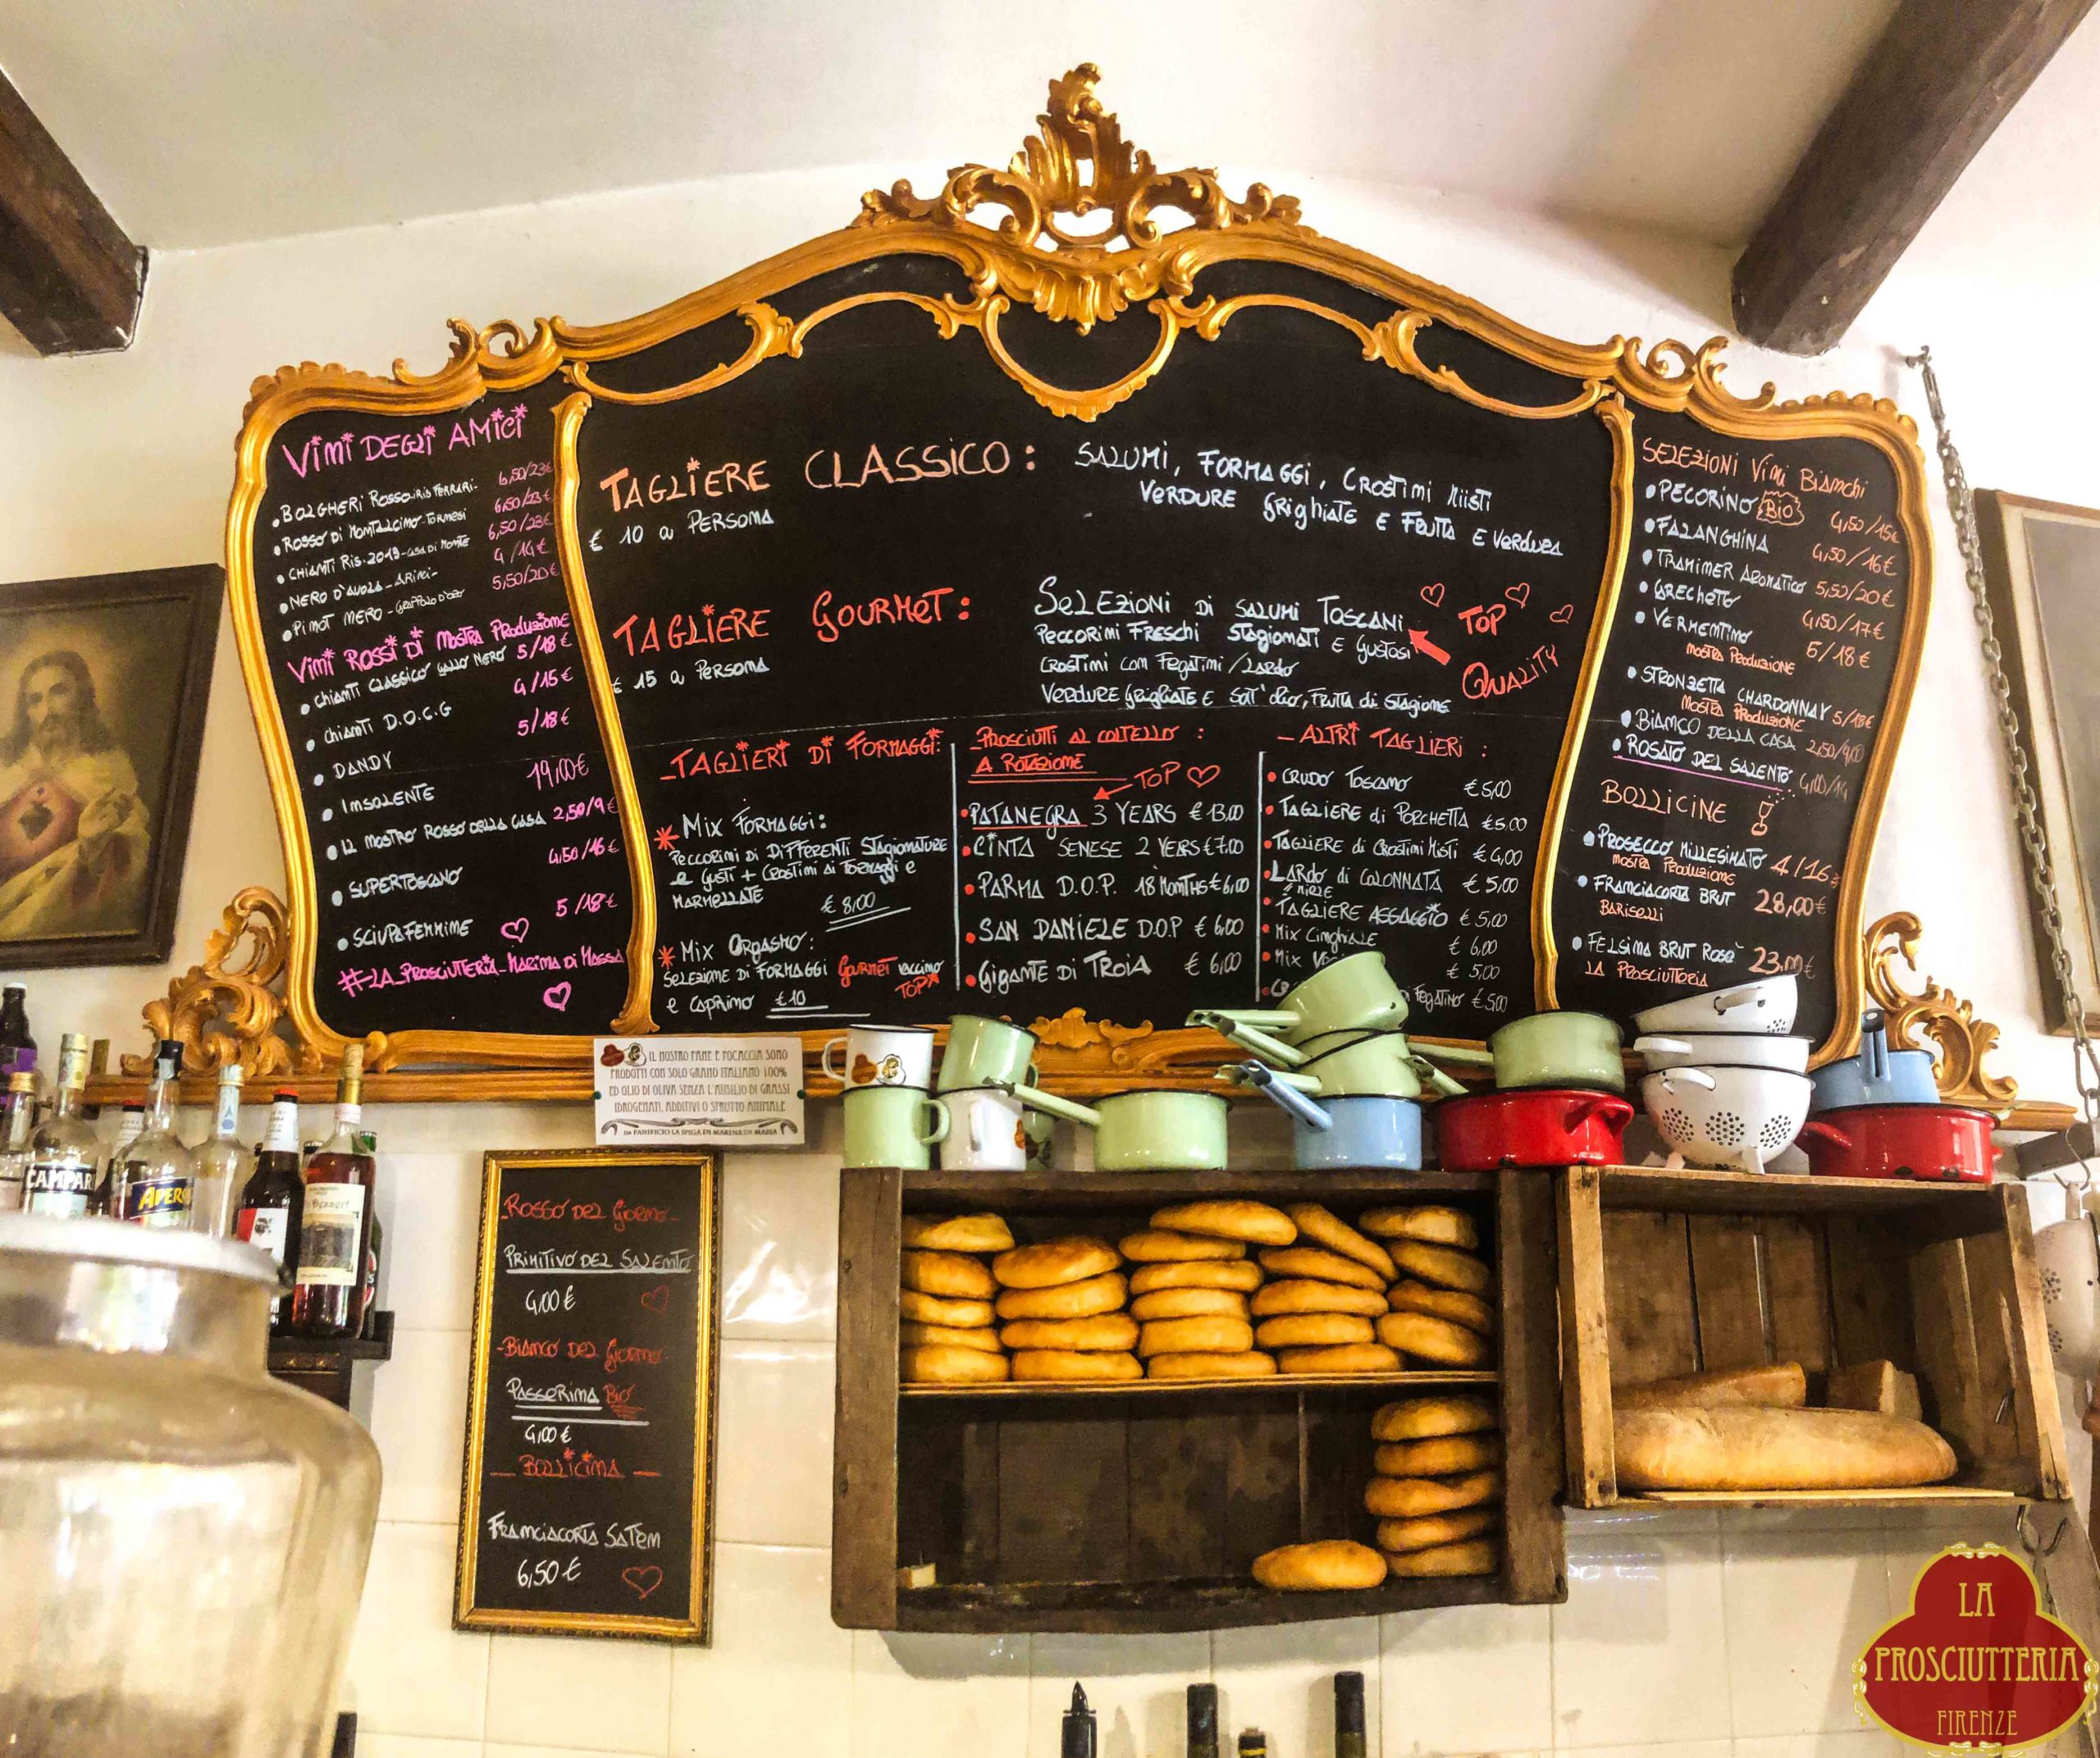 Vini DEGLI AMICI
• BOLGHERI ROSSO-IRIS FERRARI- 6,50/23€
• ROSSO DI MONTALCINO-TORNESI 6,50/23€
• CHIANTI RIS. 2013-CASA DI MONTE 6,50/23€
• NERO D'AVOLA - ARINCI- 4/14€
• PINOT NERO - GRAPPOLO D'ORO 5,50/20€
Vini ROSSI DI NOSTRA PRODUZIONE
• CHIANTI CLASSICO GALLO NERO 5/18€
• CHIANTI D.O.C.G 4/15€
• DANDY 5/18€
• INSOLENTE 19,00€
• IL NOSTRO ROSSO DELLA CASA 2,50/9€
• SUPERTOSCANO 4,50/16€
• SCIUPAFEMMINE 5/18€
#-LA_PROSCIUTTERIA-MARINA DI MASSA
TAGLIERE CLASSICO: SALUMI, FORMAGGI, CROSTINI MISTI
€ 10 a PERSONA
VERDURE GRIGHIATE E FRUTTA E VERDURA
TAGLIERE GOURMET: SELEZIONI DI SALUMI TOSCANI
€ 15 a PERSONA
PECCORINI FRESCHI STAGIONATI E GUSTOSI
CROSTINI CON FEGATINI/LARDO
VERDURE GRIGLIATE E SOTT'OLIO, FRUTTA di STAGIONE
TOP
QUALITY
-TAGLIERI DI FORMAGGI:
* MIX FORMAGGI:
PECCORINI DI DIFFERENTI STAGIONATURE
e GUSTI + CROSTINI AI FORMAGGI e
MARMELLATE
€ 8,00
* MIX ORGASMO:
SELEZIONE DI FORMAGGI GOURMET VACCINO
TOP*
e CAPRINO €10
-PROSCIUTTI AL COLTELLO:
A ROTAZIONE
TOP
• PATANEGRA 3 YEARS € 13,00
• CINTA SENESE 2 YEARS €7.00
• PARMA D.O.P. 18 MONTHS €6,00
• SAN DANIELE D.O.P € 6,00
• GIGANTE DI TROIA € 6,00
- ALTRI TAGLIERI:
• CRUDO TOSCANO €5,00
• TAGLIERE di PORCHETTA €5,00
• TAGLIERE di CROSTINI MISTI €4,00
• LARDO di COLONNATA € 5,00
• TAGLIERE ASSAGGIO € 5,00
• MIX CINGHIALE € 6,00
• MIX € 5,00
FEGATINO €5,00
SELEZIONI Vini BIANCHI
• PECORINO BIO 4,50/15€
• FALANGHINA 4,50/16€
• TRAMINER AROMATICO 5,50/20€
• GRECHETTO 4,50/17€
• VERMENTINO 5/18€
NOSTRA PRODUZIONE
• STRONZETTA CHARDONNAY 5/18€
NOSTRA PRODUZIONE
• BIANCO DELLA CASA 2,50/9,00
• ROSATO DEL SALENTO 4,00/14
BOLLICINE
• PROSECCO MILLESIMATO 4/16€
NOSTRA PRODUZIONE
• FRANCIACORTA BRUT 28,00€
BARISELLI
• FELSINA BRUT ROSÈ 23,00€
LA PROSCIUTTERIA
IL NOSTRO PANE E FOCACCIA SONO
PRODOTTI CON SOLO GRANO ITALIANO 100%
ED OLIO DI OLIVA SENZA L'AUSILIO DI GRASSI
IDROGENATI, ADDITIVI O STRUTTO ANIMALE
DA PANIFICIO LA SPIGA DI MARINA DI MASSA
CAMPARI
APEROL
-ROSSO DEL GIORNO-
PRIMITIVO DEL SALENTO
4,00€
-BIANCO DEL GIORNO-
PASSERINA BIO
4,00€
- BOLLICINA -
FRANCIACORTA SATEN
6,50€
LA
PROSCIUTTERIA
FIRENZE